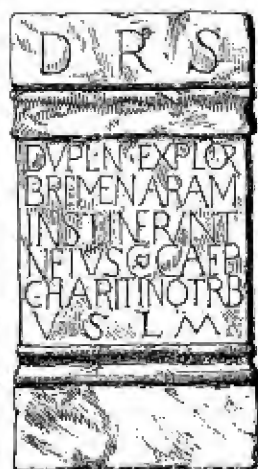 D R S
DVPL·N·EXPLOR
BREMEN ARAM
INSTITVERVNT
N EIVS C CAEP
CHARITINO TRB
V S L M